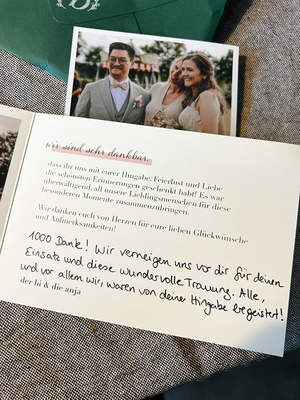 wir sind sehr dankbar,
dass ihr uns mit eurer Hingabe, Feierlust und Liebe
die schönsten Erinnerungen geschenkt habt! Es war
überwältigend, all unsere Lieblingsmenschen für diese
besonderen Momente zusammenzubringen.
Wir danken euch von Herzen für eure lieben Glückwünsche
und Aufmerksamkeiten!
1000 Dank! Wir verneigen uns vor dir für deinen
Einsatz und diese wundervolle Trauung. Alle,
und vor allem wir, waren von deiner Hingabe begeistert!
der bi & die anja